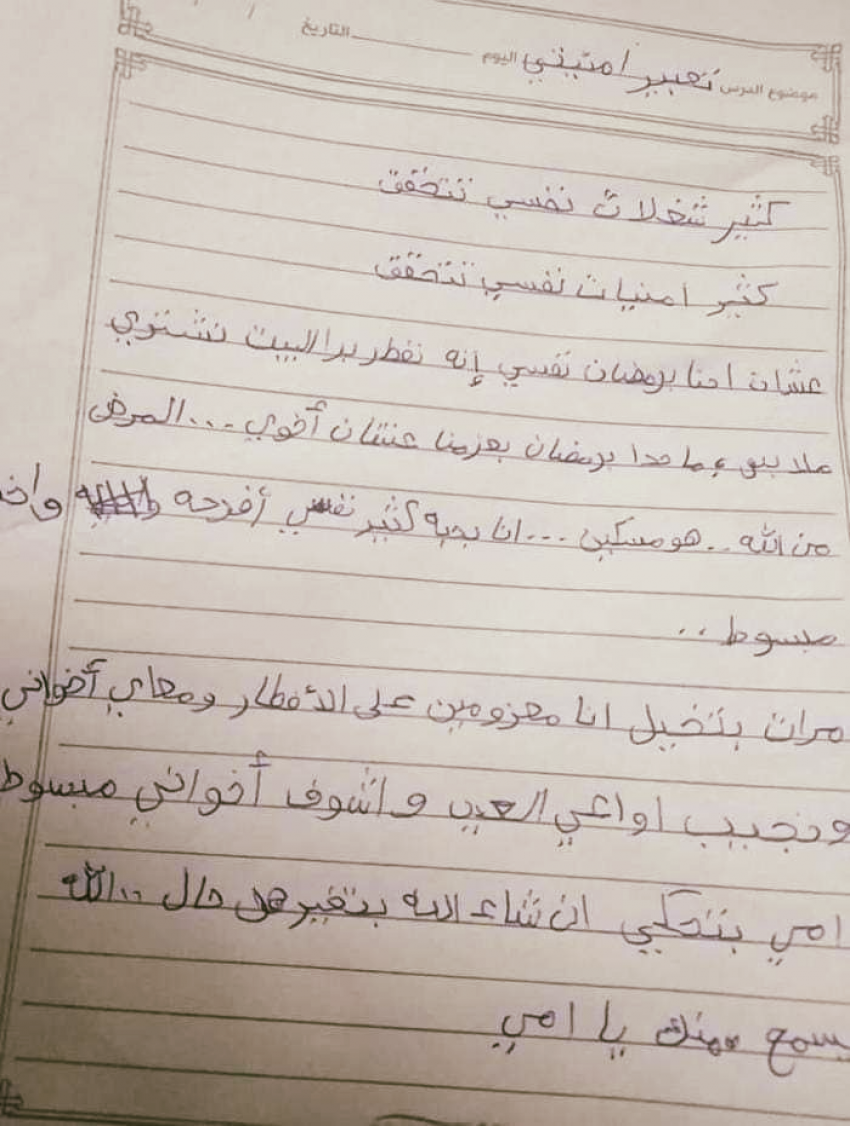 التاريخ / /
موضوع الدرس تعبير امنيتي اليوم
كثير شغلات نفسي تتحقق
كثير امنيات نفسي تتحقق
عشان احنا برمضان نفسي إنه نفطر برا البيت نشتري
ملابس وما حدا برمضان بعزمنا عشان أخوي ... المرض
من الله .. هو مسكين ... انا بحبه كثير نفسي أفرحه
مبسوط ..
مرات بتخيل انا معزومين على الأفطار ومعاي أخواني
ونجيب اواعي العيد واشوف أخواني مبسوط
امي بتحكي ان شاء الله بتغير هل حال .. الله
يسمع منك يا امي